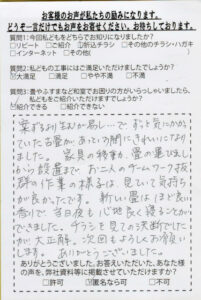 お客様のお声が私たちの励みになります。
どうぞ一言だけでもお声をお寄せください。お待ちしております。
質問1：今回私どもをどちらでお知りになりましたか？
□リピート □ご紹介 ☑折込チラシ □その他のチラシ・ハガキ
□インターネット □その他(
質問2：私どもの工事にはご満足いただけましたでしょうか？
☑大満足 □満足 □やや不満 □不満
質問3：畳やふすまなど和室でお困りの方がいらっしゃいましたら、
私どもをご紹介いただけますでしょうか？
☑紹介できる □紹介できない
ずっと気にかかっ
ていた古畳があっという間にきれいになり
ました。家具の移動、畳の運び出し
から設置までお二人のチームワーク抜
群の作業の様子は見ていて気持ち
が良かったです。新しい畳はほど良い
香りで当日夜も心地良く寝ることが
できました。チラシを見ての決断でした
が大正解。次回もよろしくお願いし
ます。ありがとうございました。
ありがとうございました。お答えいただいた、あなた様
の声を、弊社資料等に掲載させていただけますか？
□許可 ☑匿名なら可 □不可